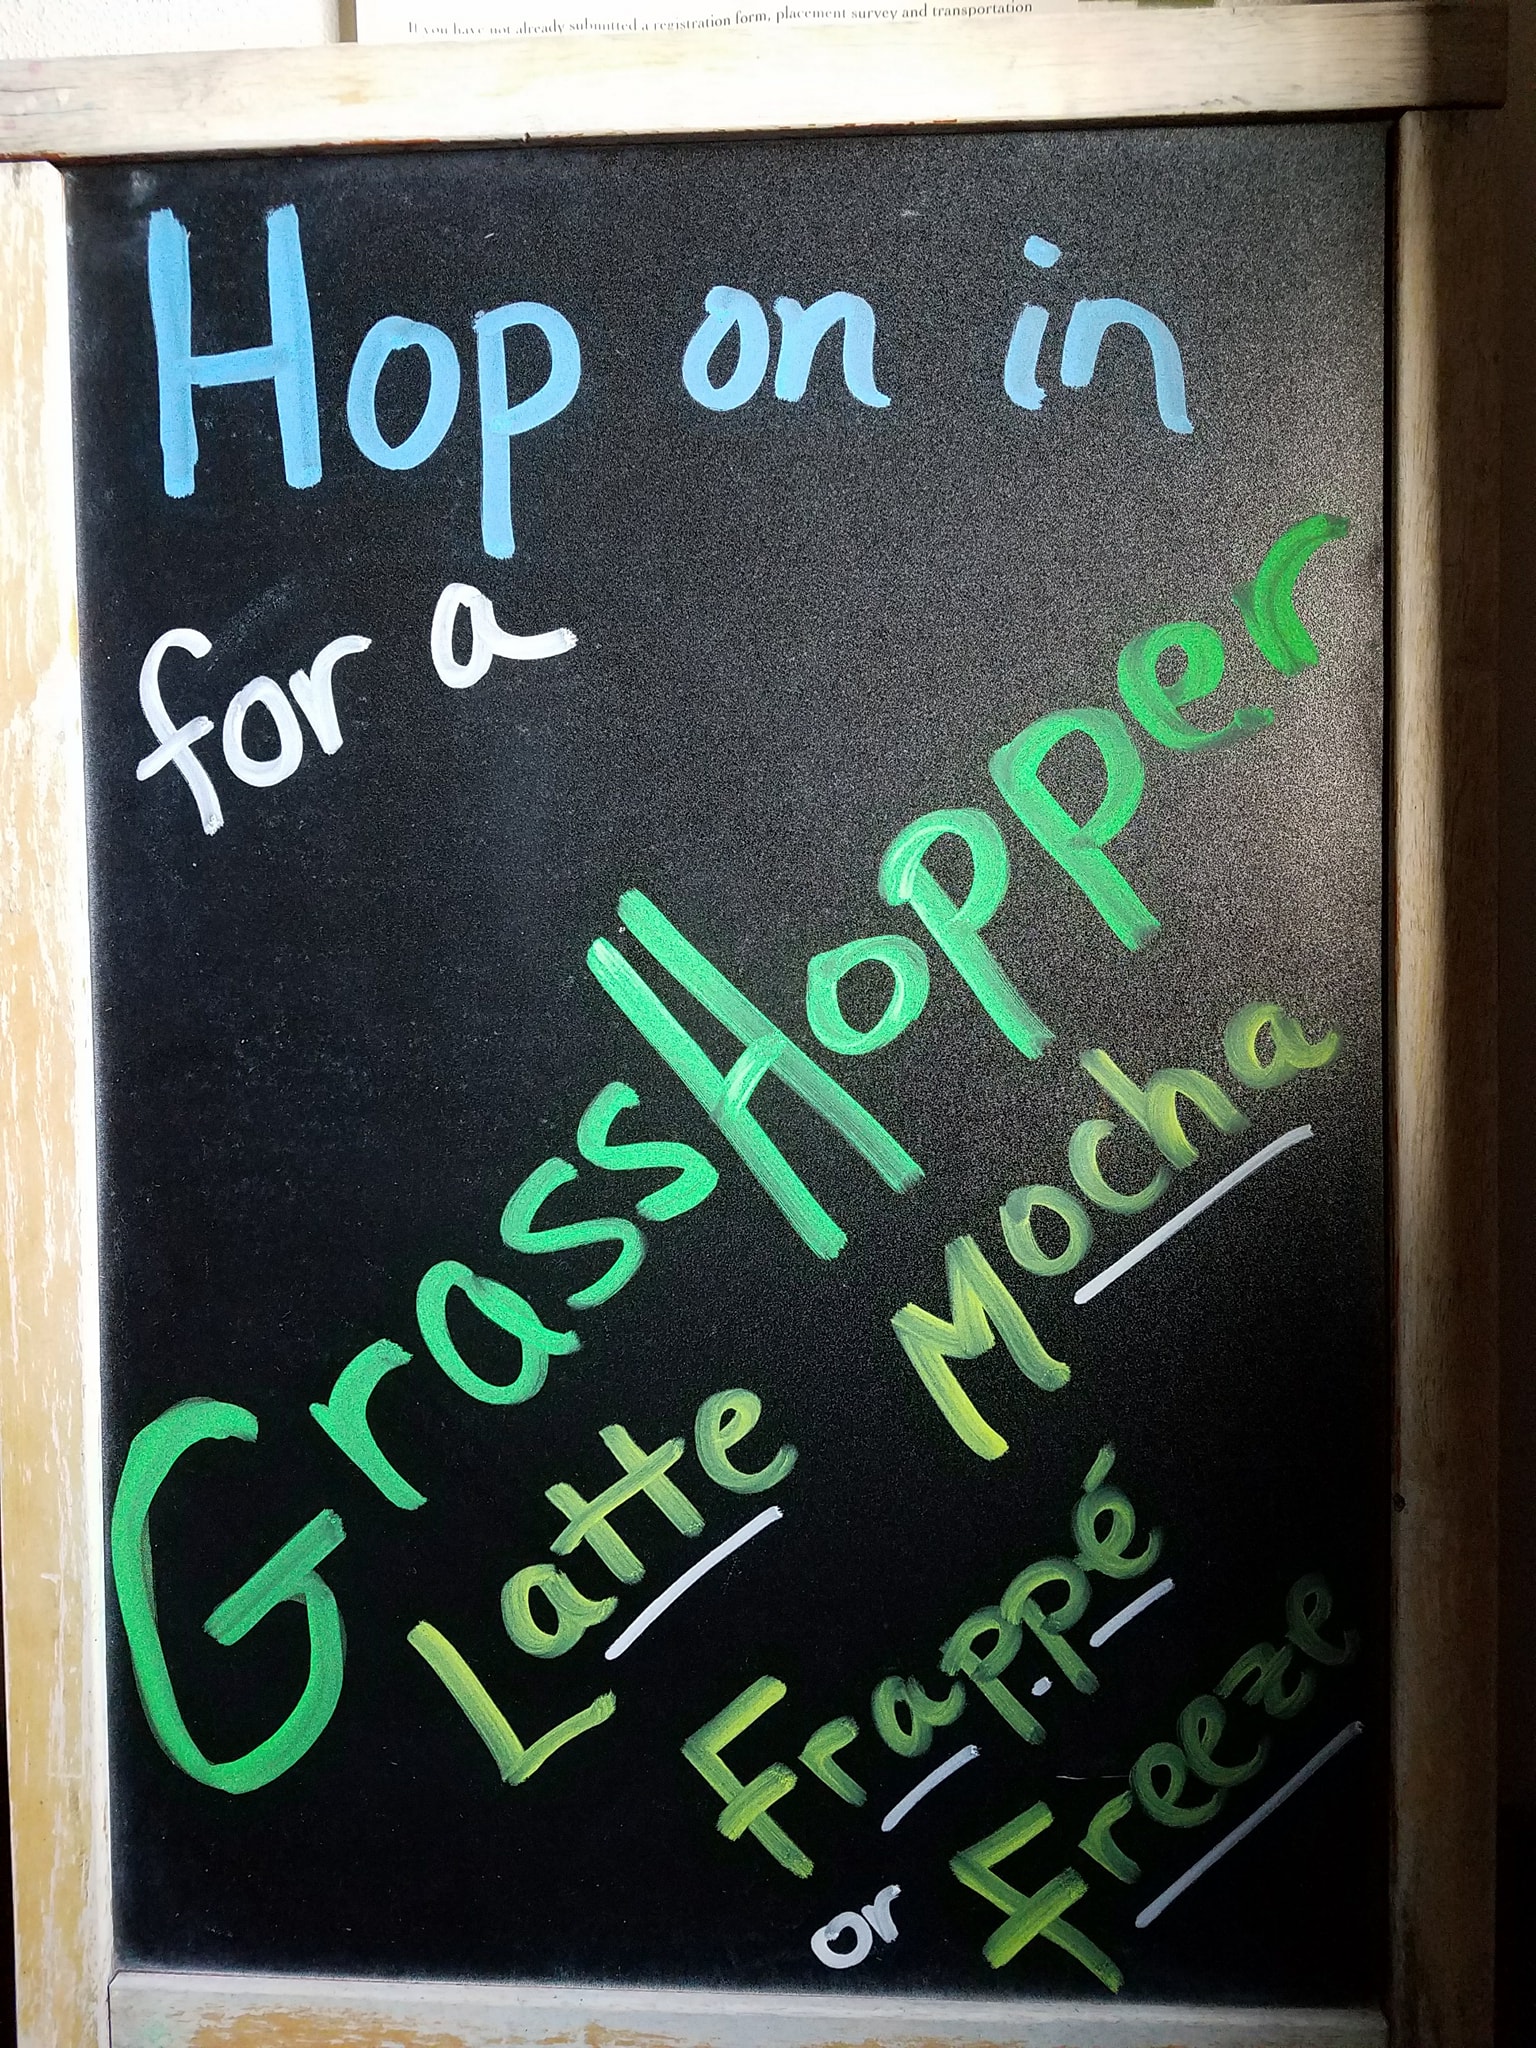 If you have not already submitted a registration form, placement survey and transportation
Hop on in
for a
GrassHopper
Latte
Mocha
Frappé
or Freeze